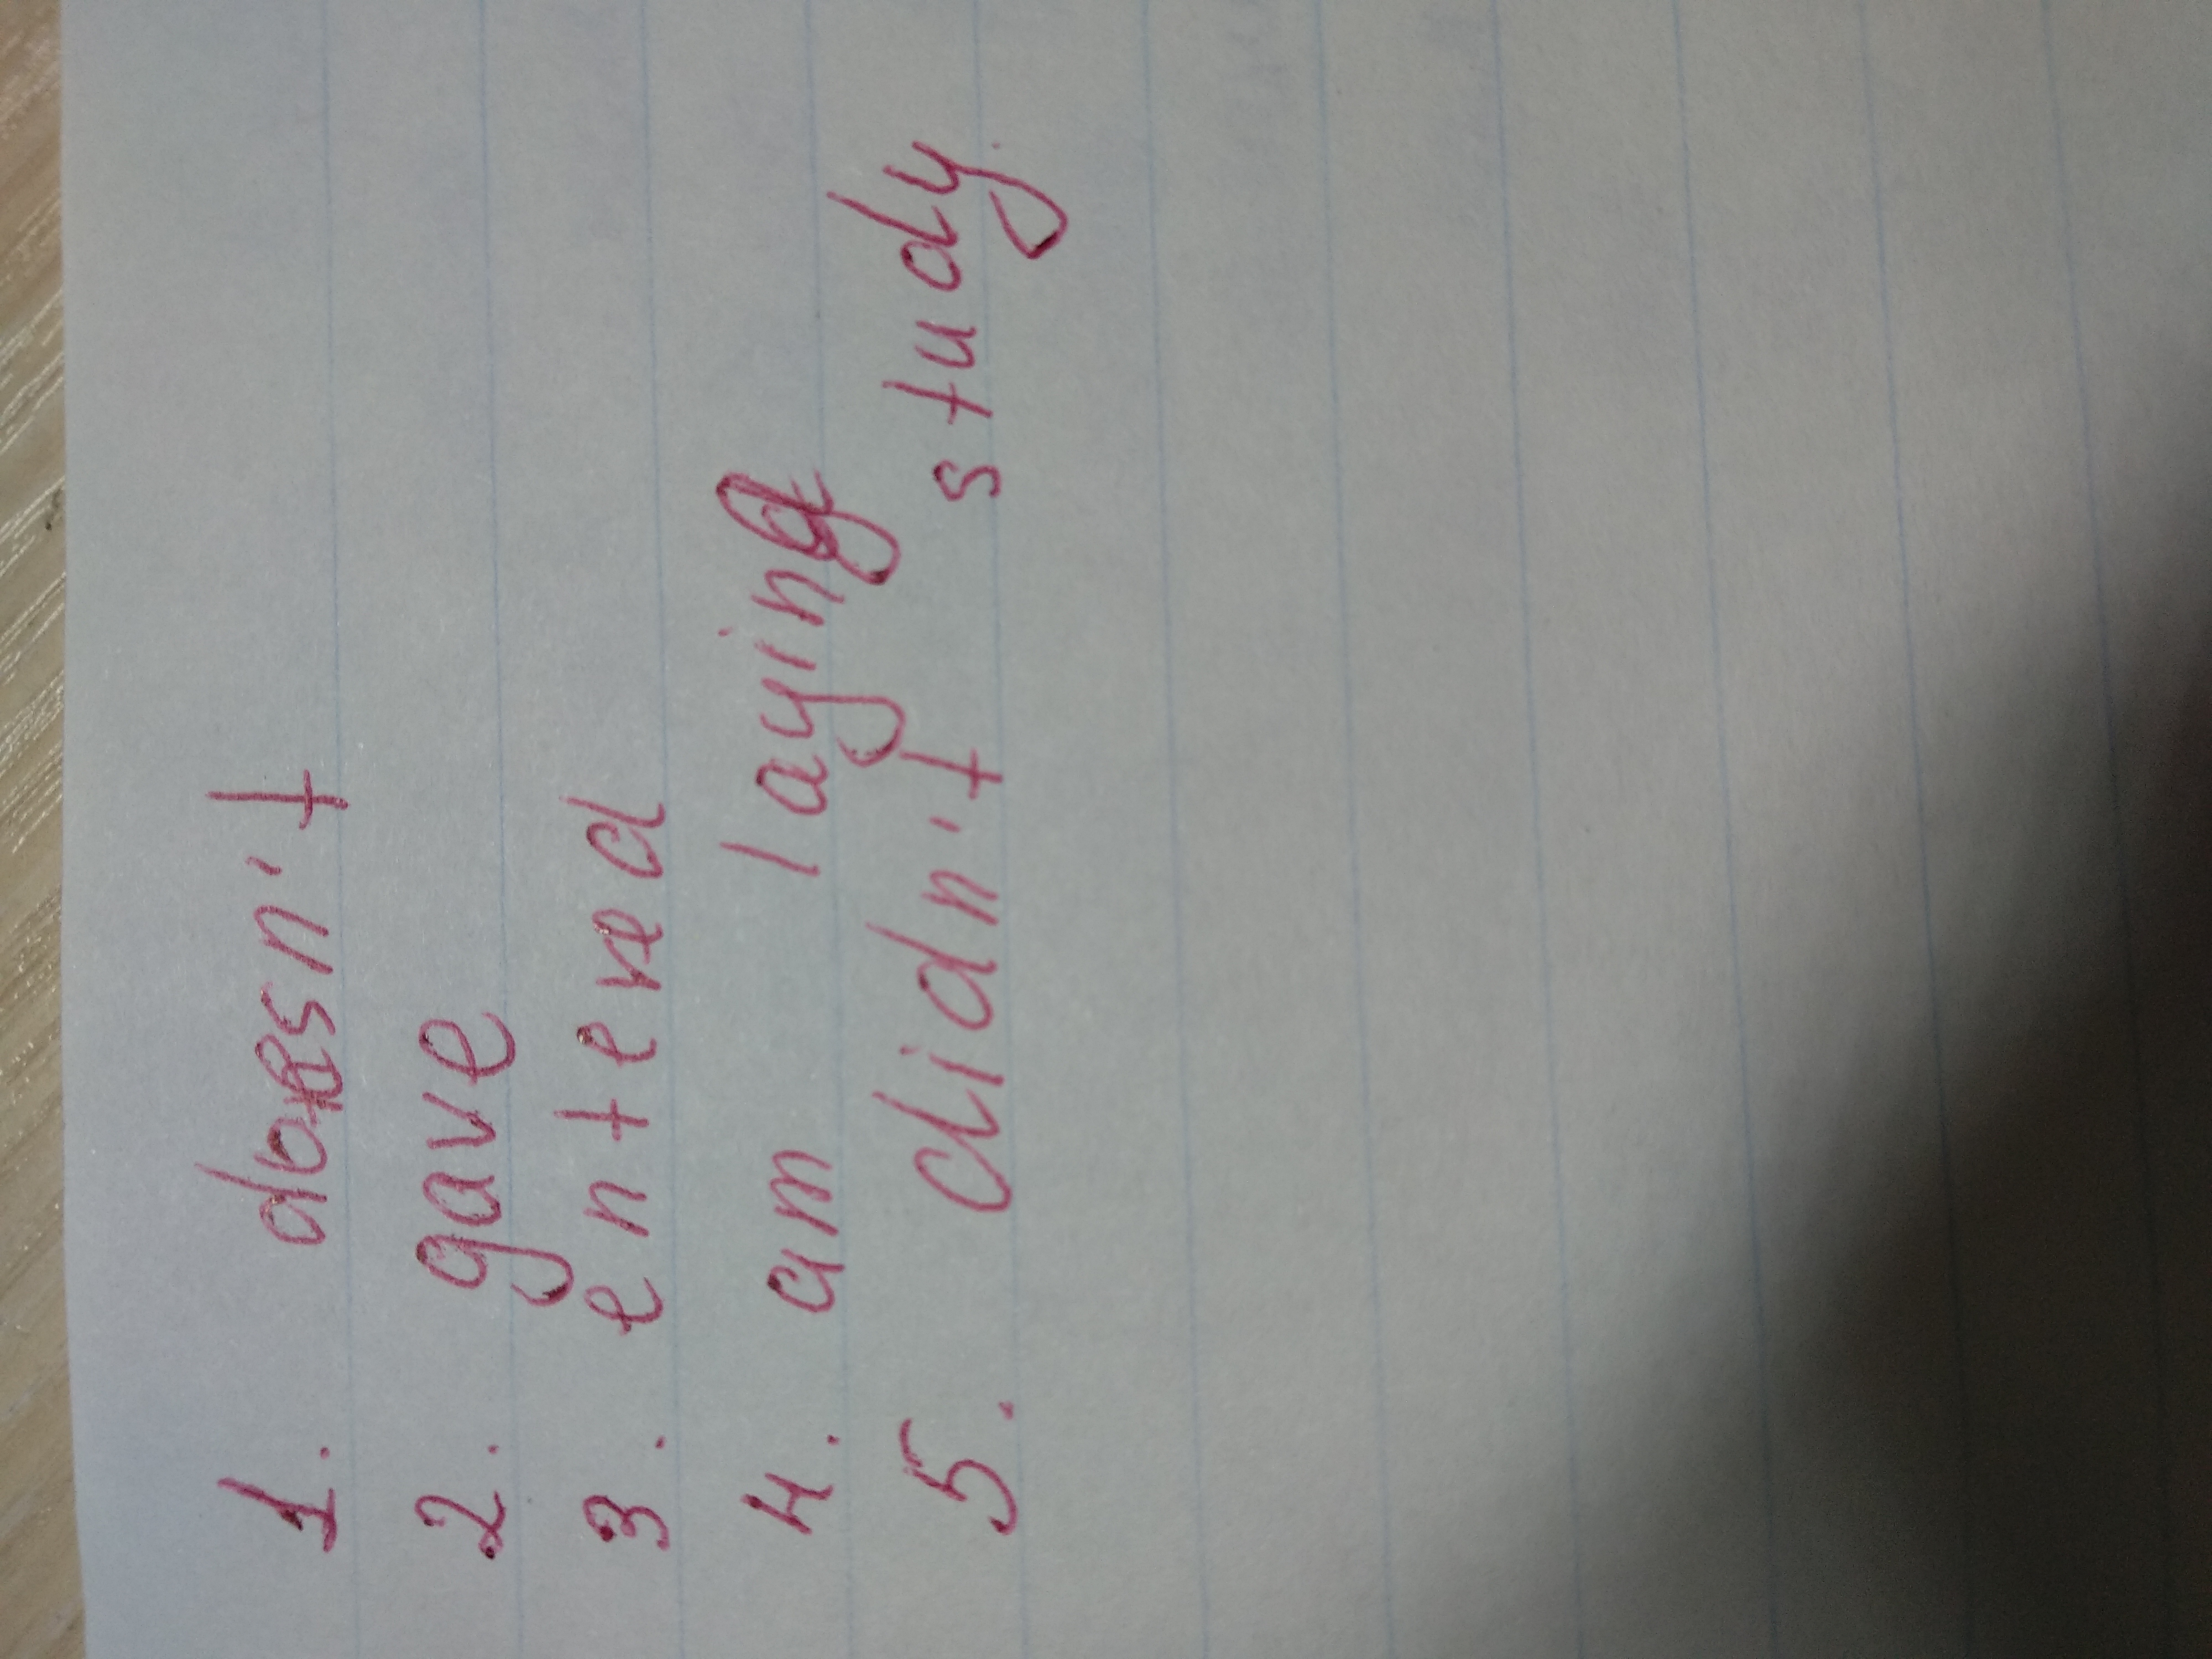 1. doesn't
2. gave
3. entered
4. am laying
5. didn't study.